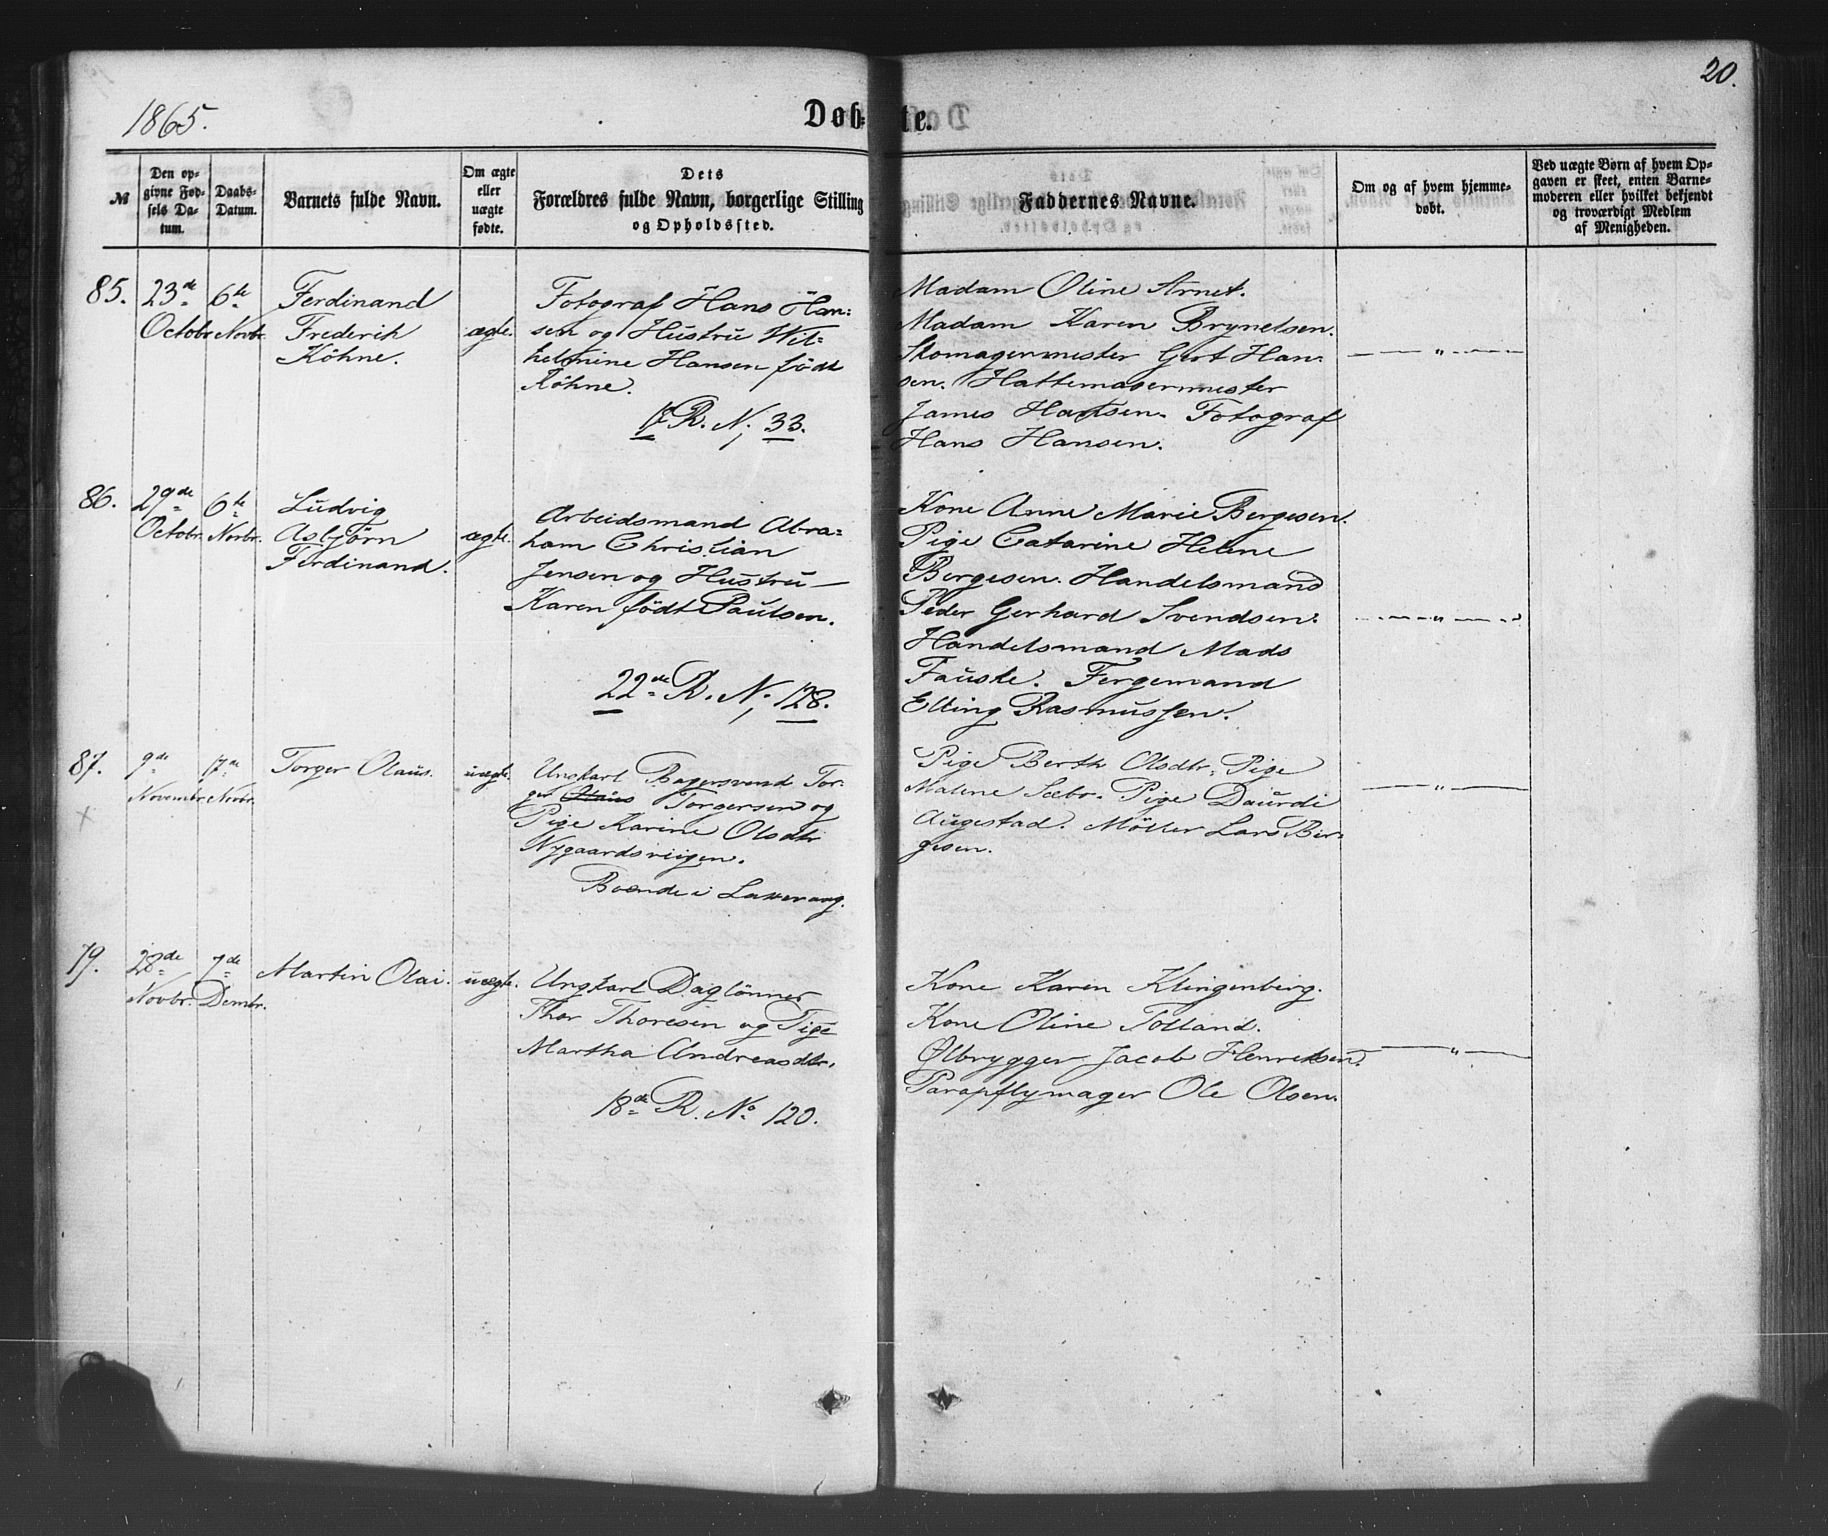 20.
1865.
Døb-te.
№
Den op-
givne Fød-
sels Da-
tum.
Daabs-
Datum.
Barnets fulde Navn.
Om ægte
eller
uægte
fødte.
Dets
Forældres fulde Navn, borgerlige Stilling
og Opholdssted.
Faddernes Navne.
Om og af hvem hjemme-
døbt.
Ved uægte Børn af hvem Op-
gaven er skeet, enten Barne-
moderen eller hvilket bekjendt
og troværdigt Medlem
af Menigheden.
85.
23de
Octobr
6te
Novbr.
Ferdinand
Frederik
Köhne.
ægte.
Fotograf Hans Han-
sen og Hustru Wil-
helmine Hansen födt
Köhne.
R. N. 33.
Madam Oline Arnet.
Madam Karen Brynelsen.
Skomagermester Gert Han-
sen. Hattemagermester
James Hansen. Fotograf
Hans Hansen.
86.
29de
Octobr.
6te
Novbr.
Ludvig
Asbjörn
Ferdinand.
ægte.
Arbeidsmand Abra-
ham Christian
Jensen og Hustru
Karen födt Paulsen.
22de R. N. 128.
Kone Anne Marie Bergesen.
Pige Catarine Helene
Bergesen. Handelsmand
Peder Gerhard Svendsen.
Handelsmand Mads
Fauske. Fergemand
Elling Rasmussen.
87.
9de
Novembr.
17de
Novbr.
Torger Olaus.
uægte.
Ungkarl Bagersvend Tor-
ger Olaus Torgersen og
Pige Karine Olsdtr
Nygaardsviigen.
Boende i Laxevaag.
Pige Berth Olsdtr. Pige
Malene Sæbø. Pige Daurdi
Augestad. Möller Lars Bir-
gesen.
79.
28de
Novbr.
7de
Dembr.
Martin Olai.
uægte.
Ungkarl Daglönner
Thor Thoresen og Pige
Martha Andreasdtr.
18de R. No 120.
Kone Karen Klingenberg.
Kone Oline Tolland.
Ølbrygger Jacob Henriksen.
Parapflymager Ole Olsen.